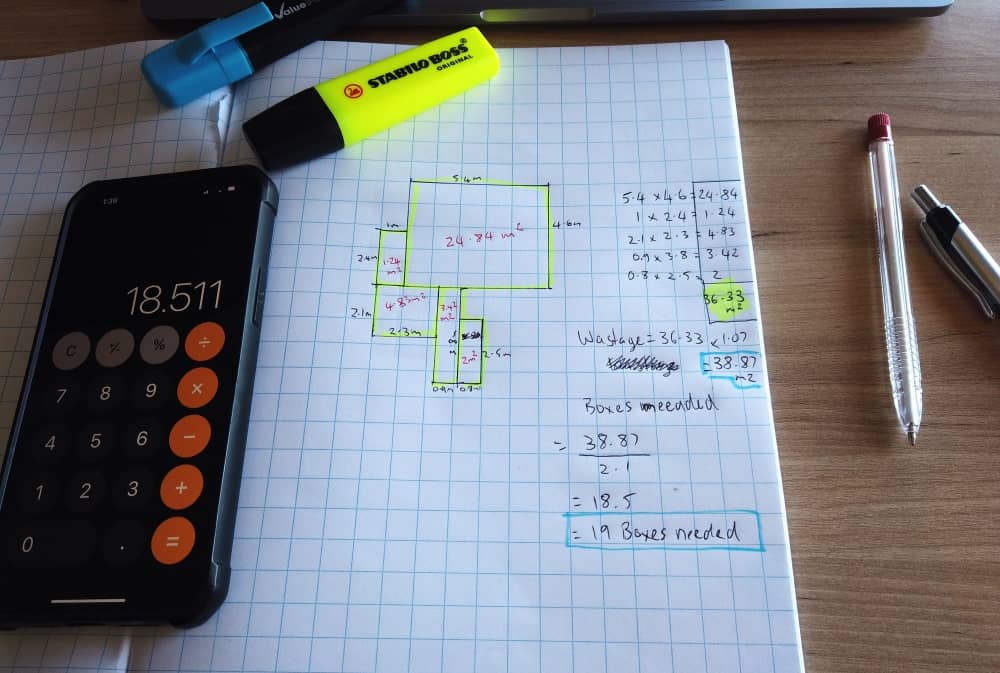 Value
STABILO BOSS®
ORIGINAL
1:38
18.511
C % ÷
7 8 9 ×
4 5 6 −
1 2 3 +
0 . =
5.4m
4.6m
24.84 m²
1m
2.4m
1.24
m²
2.1m
4.83m²
2.3m
3.42
m²
2m²
2.5m
0.9m 0.8m
5.4 x 4.6 = 24.84
1 x 2.4 = 1.24
2.1 x 2.3 = 4.83
0.9 x 3.8 = 3.42
0.8 x 2.5 = 2
36.33
m²
Wastage = 36.33 x 1.07
= 38.87
m2
Boxes meeaded
= 38.87
2.1
= 18.5
= 19 Boxes needed